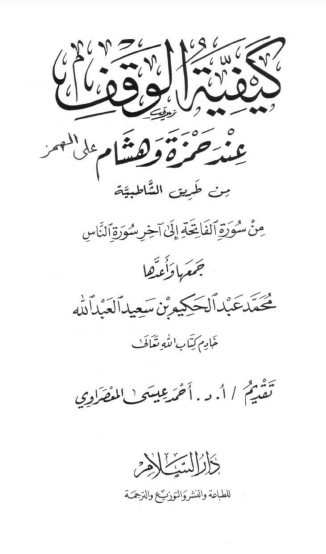 كَيْفِيَّةُ الْوَقْفِ
عِنْدَ حَمْزَةَ وَهِشَامٍ على الهمز
مِنْ طَرِيقِ الشَّاطِبِيَّةِ
مِنْ سُورَةِ الفَاتِحَةِ إِلَى آخِرِ سُورَةِ النَّاسِ
جَمَعَهَا وَأَعَدَّهَا
مُحَمَّد عَبْد الحَكِيم بْن سَعِيد العَبْد الله
خَادِم كِتَابِ اللهِ تَعَالَى
تَقْدِيمُ / أ. د. أَحْمَد عِيسَى المَعْصَرَاوِي
دَارُ السَّلَامِ
للطباعة والنشر والتوزيع والترجمة